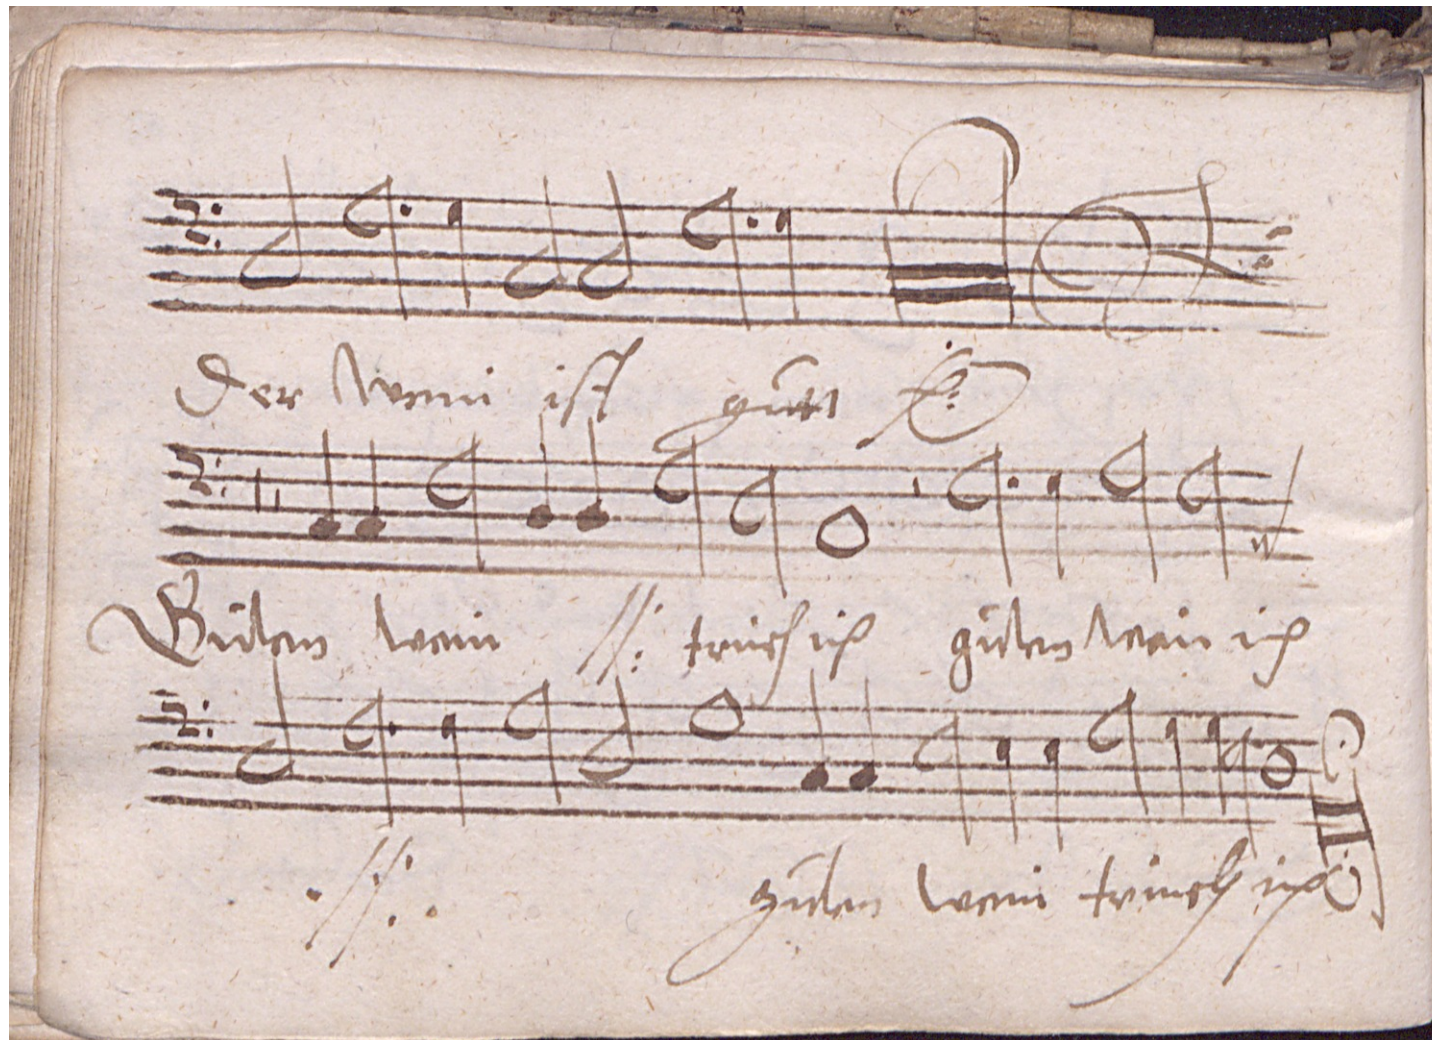 Der Wein ist gutt
Guten wein //: trinck ich guten wein ich
.//. guten wein trinck ich